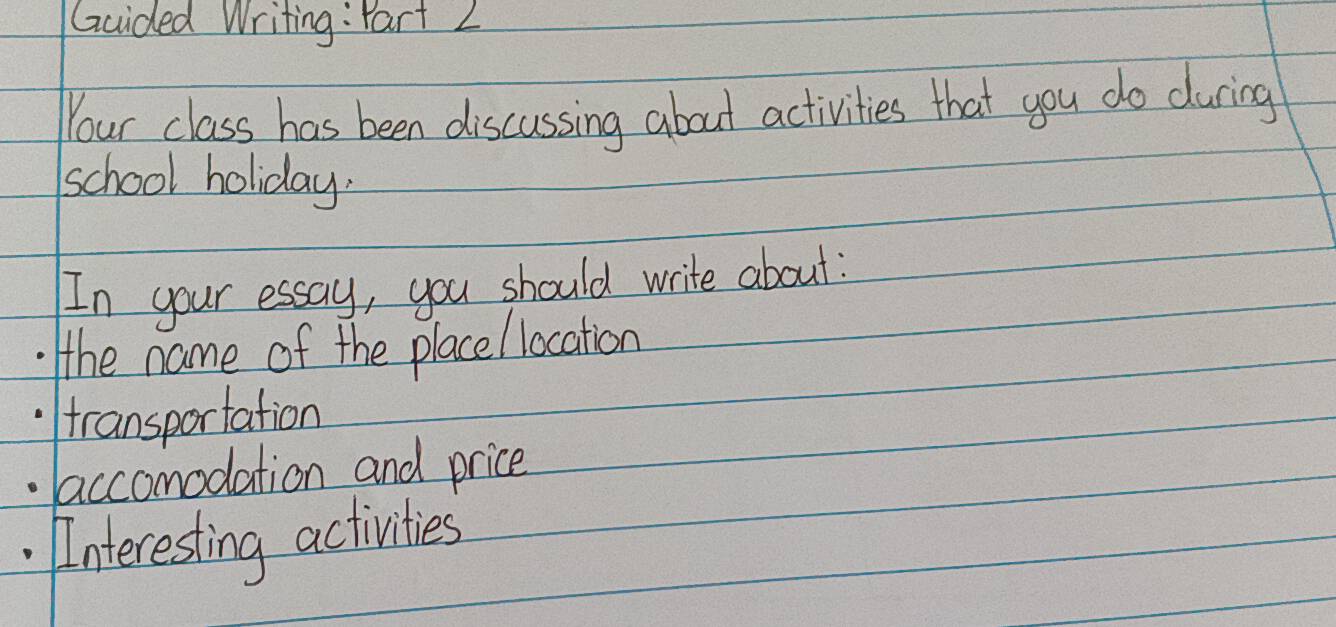 Guided Writing: Part 2
Your class has been discussing about activities that you do during
school holiday.
In your essay, you should write about:
• the name of the place/location
• transportation
• accomodation and price
• Interesting activities